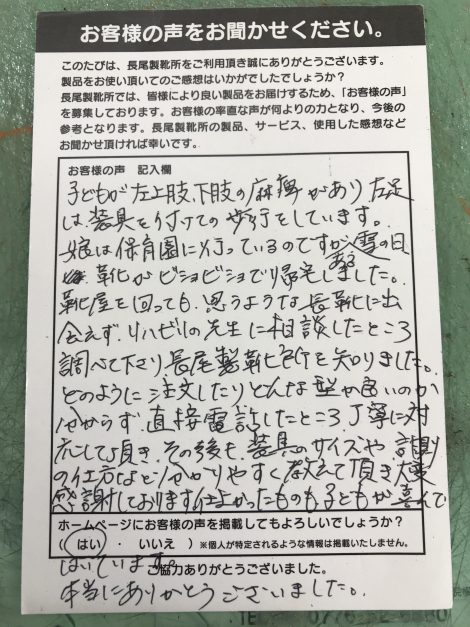 お客様の声をお聞かせください。
このたびは、長尾製靴所をご利用頂き誠にありがとうございます。
製品をお使い頂いてのご感想はいかがでしたでしょうか？
長尾製靴所では、皆様により良い製品をお届けするため、「お客様の声」
を募集しております。お客様の率直な声が何よりの力となり、今後の
参考となります。長尾製靴所の製品、サービス、使用した感想など
お聞かせ頂ければ幸いです。
お客様の声 記入欄
子どもが左上肢、下肢の麻痺があり左足
は装具を付けての歩行をしています。
娘は保育園に行っているのですが、雪の日
ある
靴がビショビショで帰宅しました。
靴屋を回っても、思うような長靴に出
会えず、リハビリの先生に相談したところ
調べて下さり、長尾製靴所を知りました。
どのように注文したりどんな型が良いのか
分からず、直接電話したところ丁寧に対
応して頂き、その後も、装具のサイズや、計測
の仕方など分かりやすく教えて頂き大変
感謝しております。仕上がったものも子どもが喜んで
ホームページにお客様の声を掲載してもよろしいでしょうか？
（ はい ・ いいえ ） ※個人が特定されるような情報は掲載いたしません。
はいています。
ご協力ありがとうございました。
本当にありがとうございました。